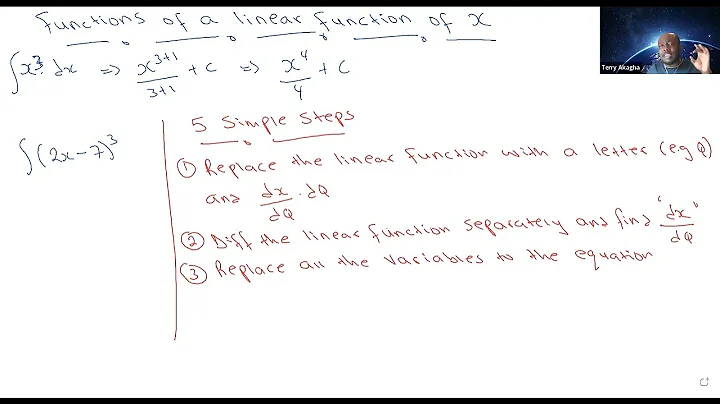 Functions of a linear function of x
∫x³ dx ⇒ x³⁺¹/3+1 + C ⇒ x⁴/4 + C
Terry Akagha
5 Simple Steps
∫(2x-7)³
① Replace the linear function with a letter (e.g Q)
and dx/dQ . dQ
② Diff the linear function separately and find "dx/dQ"
③ Replace all the variables to the equation